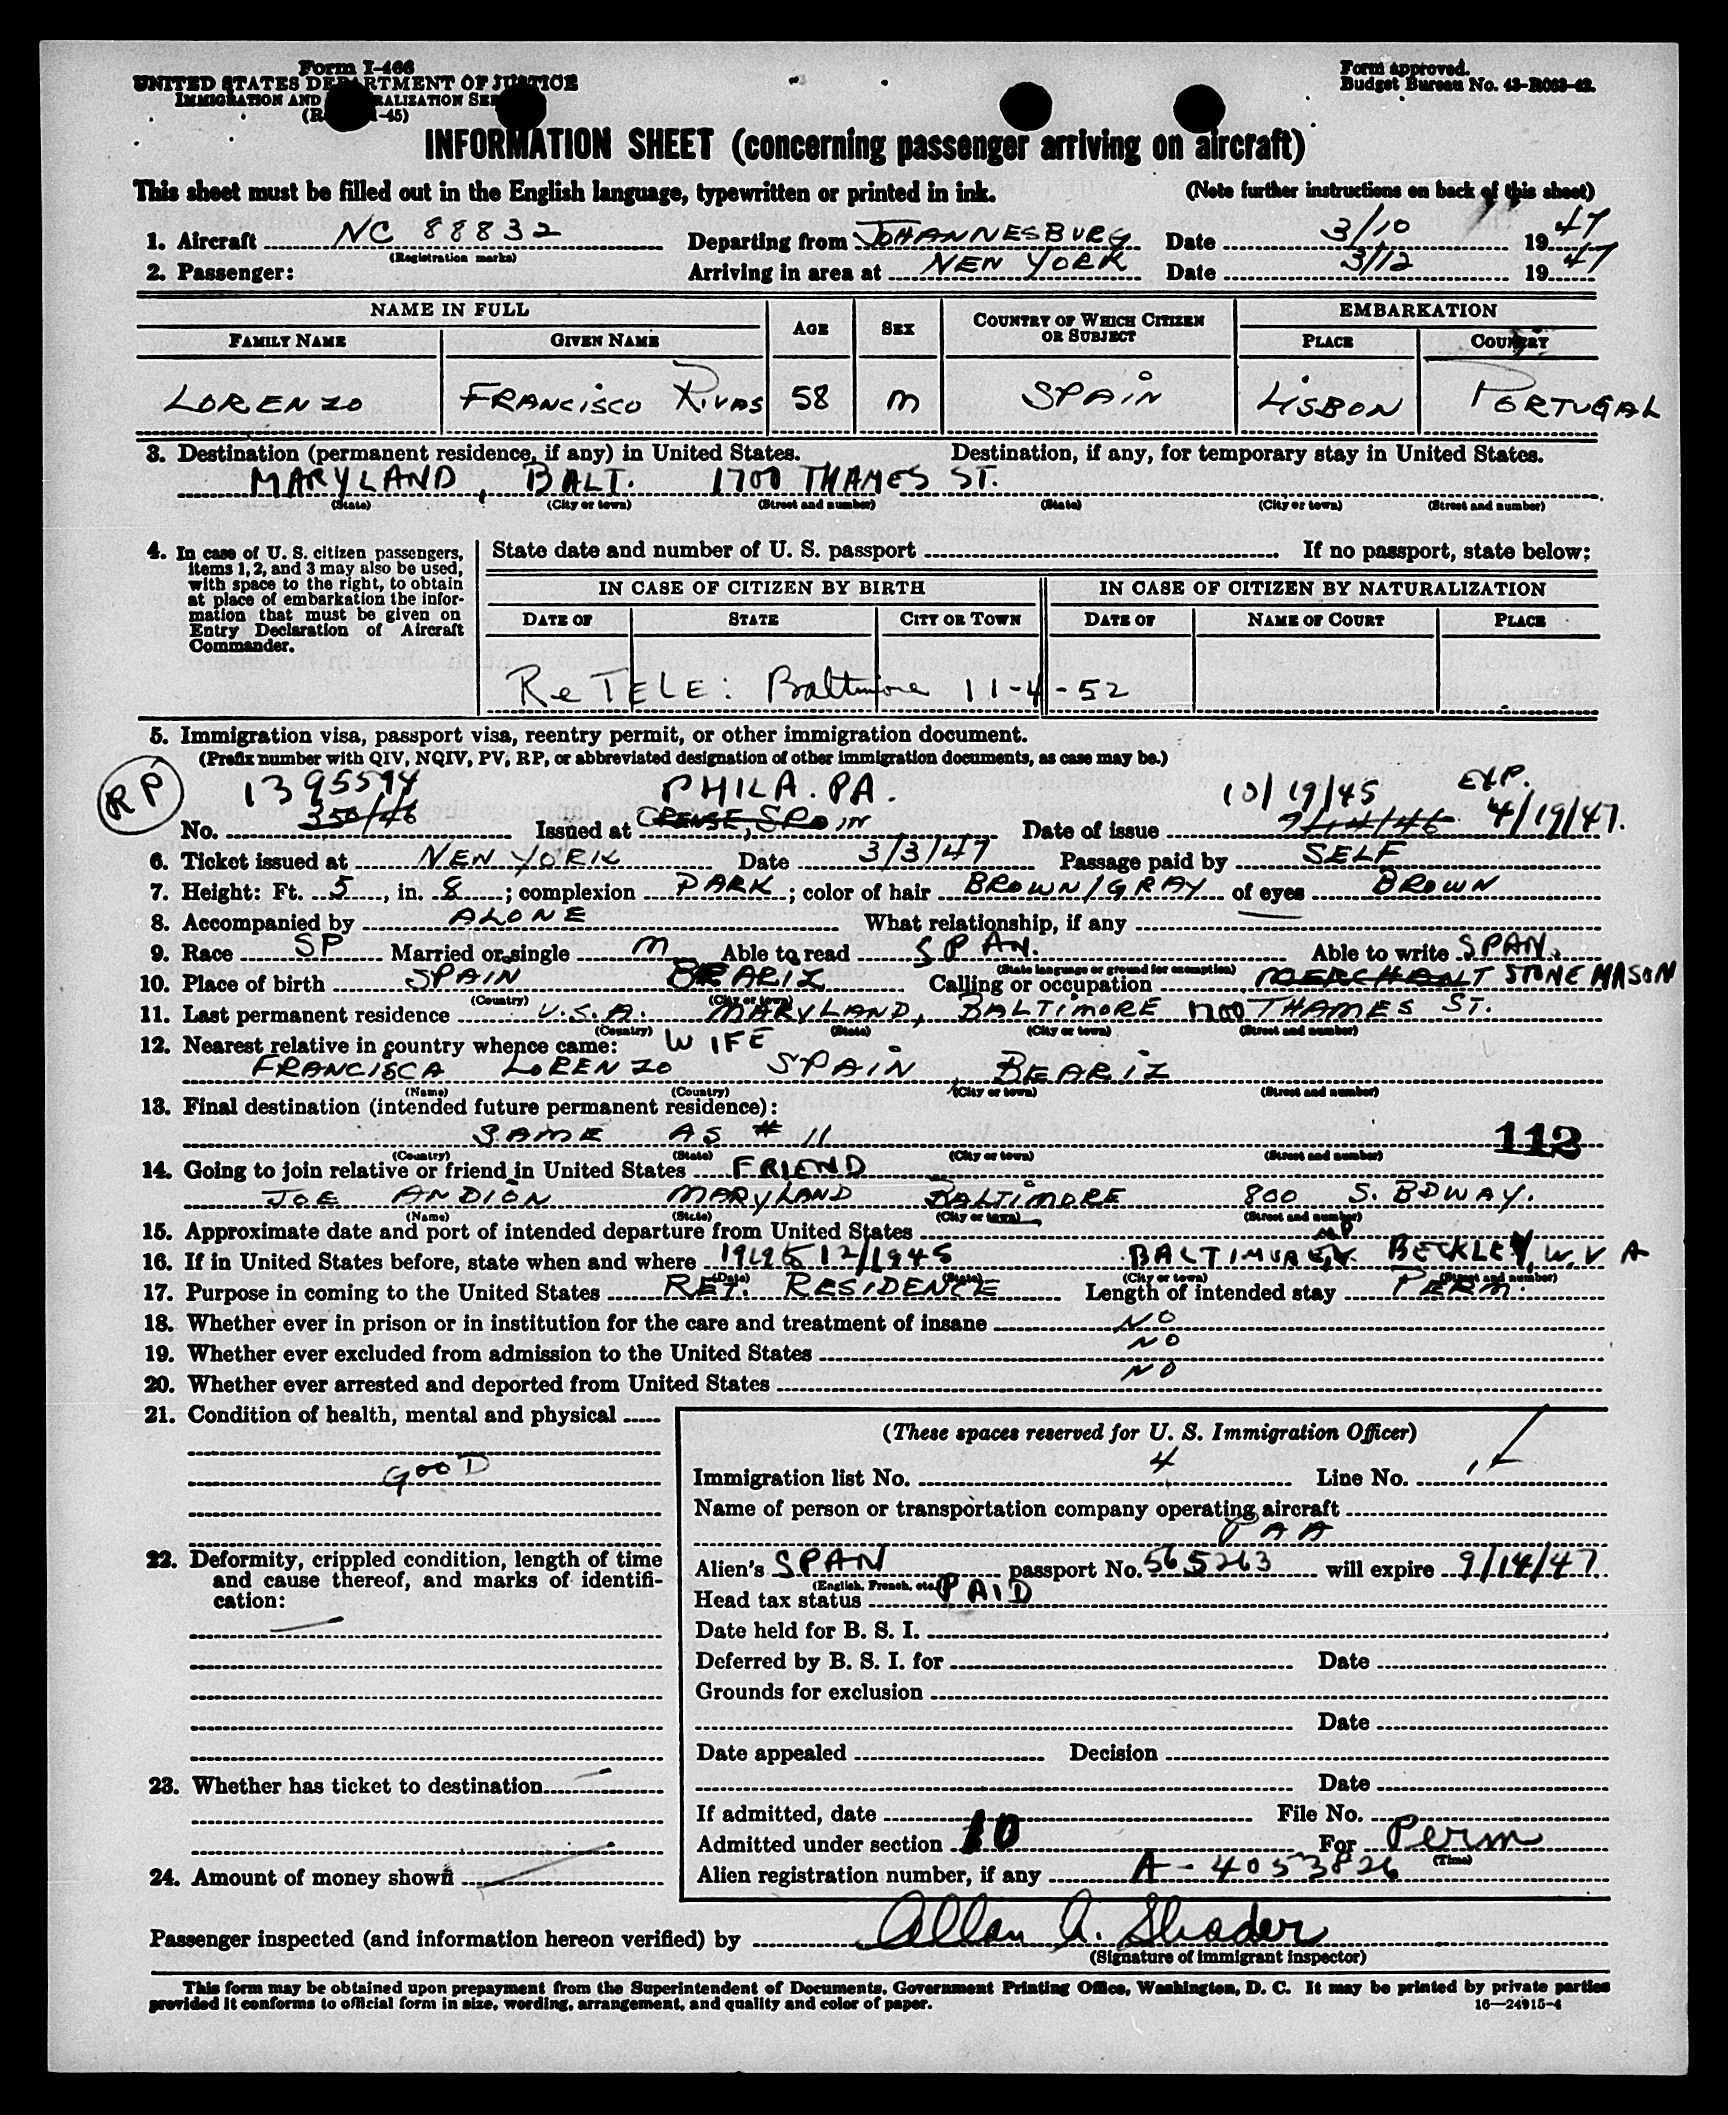 Form I-466
UNITED STATES DEPARTMENT OF JUSTICE
IMMIGRATION AND NATURALIZATION SER
(R 1-45)
Form approved.
Budget Bureau No. 43-R063-42.
INFORMATION SHEET (concerning passenger arriving on aircraft)
This sheet must be filled out in the English language, typewritten or printed in ink. (Note further instructions on back of this sheet)
1. Aircraft NC 88832 Departing from JOHANNESBURG Date 3/10 1947
(Registration marks)
2. Passenger: Arriving in area at NEW YORK Date 3/12 1947
NAME IN FULL AGE SEX COUNTRY OF WHICH CITIZEN OR SUBJECT EMBARKATION
FAMILY NAME GIVEN NAME PLACE COUNTRY
LORENZO FRANCISCO RIVAS 58 M SPAIN LISBON PORTUGAL
3. Destination (permanent residence, if any) in United States. Destination, if any, for temporary stay in United States.
MARYLAND, BALT. 1700 THAMES ST.
(State) (City or town) (Street and number) (State) (City or town) (Street and number)
4. In case of U. S. citizen passengers, items 1, 2, and 3 may also be used, with space to the right, to obtain at place of embarkation the information that must be given on Entry Declaration of Aircraft Commander.
State date and number of U. S. passport If no passport, state below:
IN CASE OF CITIZEN BY BIRTH IN CASE OF CITIZEN BY NATURALIZATION
DATE OF STATE CITY OR TOWN DATE OF NAME OF COURT PLACE
Re TELE: Baltimore 11-4-52
5. Immigration visa, passport visa, reentry permit, or other immigration document.
(Prefix number with QIV, NQIV, PV, RP, or abbreviated designation of other immigration documents, as case may be.)
RP 1395594 PHILA. PA. 10/19/45 EXP.
No. 350/46 Issued at ORENSE, SPAIN Date of issue 9/14/46 4/19/47.
6. Ticket issued at NEW YORK Date 3/3/47 Passage paid by SELF
7. Height: Ft. 5, in. 8; complexion DARK; color of hair BROWN/GRAY of eyes BROWN
8. Accompanied by ALONE What relationship, if any
9. Race SP Married or single M Able to read SPAN. Able to write SPAN.
(State language or ground for exemption)
10. Place of birth SPAIN BEARIZ Calling or occupation MERCHANT STONE MASON
(Country) (City or town)
11. Last permanent residence U.S.A. MARYLAND, BALTIMORE 1700 THAMES ST.
(Country) (State) (City or town) (Street and number)
12. Nearest relative in country whence came: WIFE
FRANCISCA LORENZO SPAIN, BEARIZ
(Name) (Country) (City or town) (Street and number)
13. Final destination (intended future permanent residence):
SAME AS # 11 112
(Country) (State) (City or town) (Street and number)
14. Going to join relative or friend in United States FRIEND
JOE ANDION MARYLAND BALTIMORE 800 S. BDWAY.
(Name) (State) (City or town) (Street and number)
15. Approximate date and port of intended departure from United States
16. If in United States before, state when and where 12/1945 BALTIMORE, BECKLEY, W. VA
(Date) (State) (City or town) (Street and number)
17. Purpose in coming to the United States RET. RESIDENCE Length of intended stay PERM.
18. Whether ever in prison or in institution for the care and treatment of insane NO
19. Whether ever excluded from admission to the United States NO
20. Whether ever arrested and deported from United States NO
21. Condition of health, mental and physical
GOOD
22. Deformity, crippled condition, length of time and cause thereof, and marks of identification:
23. Whether has ticket to destination
24. Amount of money shown
(These spaces reserved for U. S. Immigration Officer)
Immigration list No. 4 Line No. 1
Name of person or transportation company operating aircraft
PAA
Alien's SPAN passport No. 565263 will expire 9/14/47
(English, French, etc.)
Head tax status PAID
Date held for B. S. I.
Deferred by B. S. I. for Date
Grounds for exclusion
Date
Date appealed Decision
Date
If admitted, date File No.
Admitted under section 10 For Perm
(Time)
Alien registration number, if any A-4053826
Passenger inspected (and information hereon verified) by Allan A. Shader
(Signature of immigrant inspector)
This form may be obtained upon prepayment from the Superintendent of Documents, Government Printing Office, Washington, D. C. It may be printed by private parties
provided it conforms to official form in size, wording, arrangement, and quality and color of paper. 16—24915-4